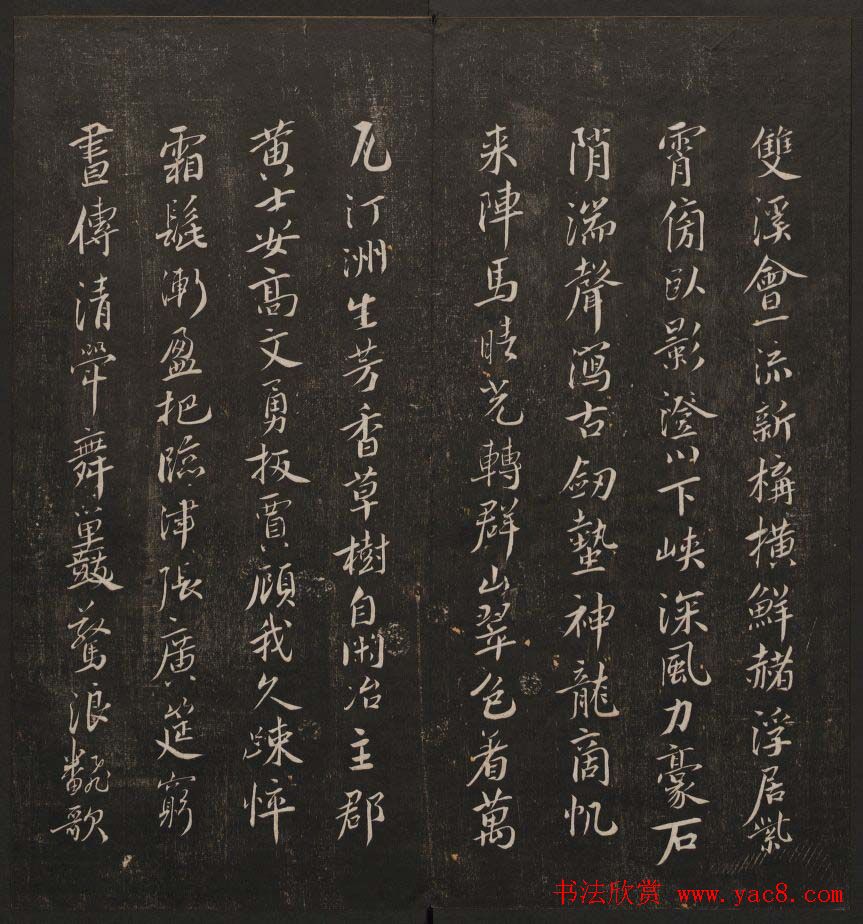 雙溪會一流新構橫鮮赭浮居紫
霄傍臥影澄川下峽深風力豪石
陗湍聲瀉古劍蟄神龍商帆
来陣馬晴光轉群山翠色着萬
瓦汀洲生芳香草樹自閑冶主郡
黄士安高文勇扳賈顧我久疎悴
霜髭漸盈把臨津張廣筵窮
晝傳清斝舞單鼓驚浪歌
书法欣赏 www.yac8.com